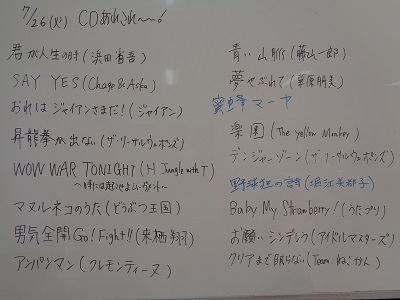 7/26(火) CDあれこれ〜〜!
君が人生の時(浜田省吾)
SAY YES(Chage&Aska)
おれはジャイアンさまだ!(ジャイアン)
昇龍拳が出ない(ザ・リーサルウェポンズ)
WOW WAR TONIGHT(H Jungle with T)
〜時には起こせよムーヴメント〜
マヌルネコのうた(どうぶつ王国)
男気全開Go!Fight!!(来栖翔)
アンパンマン(クレモンティーヌ)
青い山脈(藤山一郎)
夢やぶれて(華原朋美)
蜜蜂マーヤ
楽園(The yellow Monkey)
デンジャーゾーン(ザ・リーサルウェポンズ)
野球狂の詩(堀江美都子)
Baby My Strawberry!(うたプリ)
お願いシンデレラ(アイドルマスターズ)
クリアまで眠らない(Team.ねこかん)